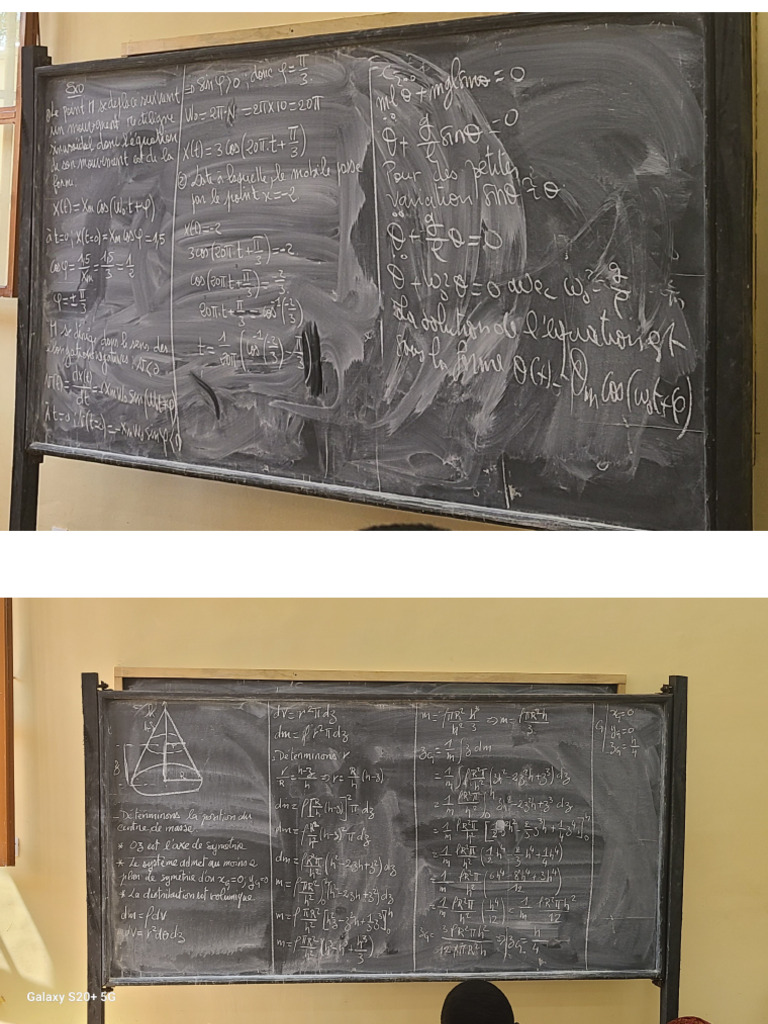 So
Le point M se déplace suivant
un mouvement rectiligne
sinusoïdal donc l'équation
de son mouvement est de la
forme.
X(t) = Xm cos(ω₀t+φ)
à t=0; X(t=0) = Xm cos φ = 1,5
cos φ = 1,5/Xm = 1,5/3 = 1/2
φ = ± π/3
M se dirige dans le sens des
élongations négatives: v<0
v(t) = dx(t)/dt = -Xm ω₀ sin(ω₀t+φ)
à t=0; v(t=0) = -Xm ω₀ sin φ <0
⇒ sin φ > 0; donc φ = π/3.
ω₀ = 2πN = 2π×10 = 20π
X(t) = 3 cos(20π·t + π/3)
② Date à laquelle le mobile passe
par le point x = -2
X(t) = -2
3cos(20π·t + π/3) = -2
cos(20π·t + π/3) = -2/3
20π·t + π/3 = cos⁻¹(-2/3)
t = 1/20π (cos⁻¹(-2/3) - π/3)
ml θ̈ + mg sin θ = 0
θ̈ + g/l sin θ = 0
Pour des petites
variation sin θ ≈ θ
θ̈ + g/l θ = 0
θ̈ + ω₀² θ = 0 avec ω₀² = g/l
La solution de l'équation est
sous la forme θ(t) = θm cos(ω₀t+φ)
R
- Déterminons la position du
centre de masse
* Oz est l'axe de symétrie
* Le système admet au moins 2
plan de symétrie d'où xG=0, yG=0
* La distribution est volumique.
dm = ρdV
dV = r²dθdz
dV = r²πdz
dm = ρr²πdz
Déterminons r
r/R = (h-z)/h ⇒ r = R/h (h-z)
dm = ρ[R/h (h-z)]² π dz
dm = ρ R²/h² (h-z)² π dz
dm = ρ R²π/h² (h²-2zh+z²)dz
m = ρ πR²/h² ∫(h²-2zh+z²)dz
m = ρ πR²/h² [h²z - z²h + 1/3 z³]₀ʰ
m = ρ πR²/h² (h³-h³+h³/3)
m = ρπR²/h² h³/3 ⇒ m = ρπR²h/3
zG = 1/m ∫ z dm
= 1/m ∫ ρR²π/h² (zh²-2z²h+z³) dz
= 1/m ρR²π/h² ∫₀ʰ zh²-2z²h+z³ dz
= 1/m ρR²π/h² [1/2 z²h² - 2/3 z³h + 1/4 z⁴]₀ʰ
= 1/m ρR²π/h² (1/2 h⁴ - 2/3 h⁴ + 1/4 h⁴)
= 1/m ρR²π/h² (6h⁴-8h⁴+3h⁴)/12
= 1/m ρR²π/h² (h⁴/12) = 1/m ρR²πh²/12
zG = 3ρR²πh²/12ρπR²h ⇒ zG = h/4
G | xG=0
yG=0
zG=h/4
Galaxy S20+ 5G